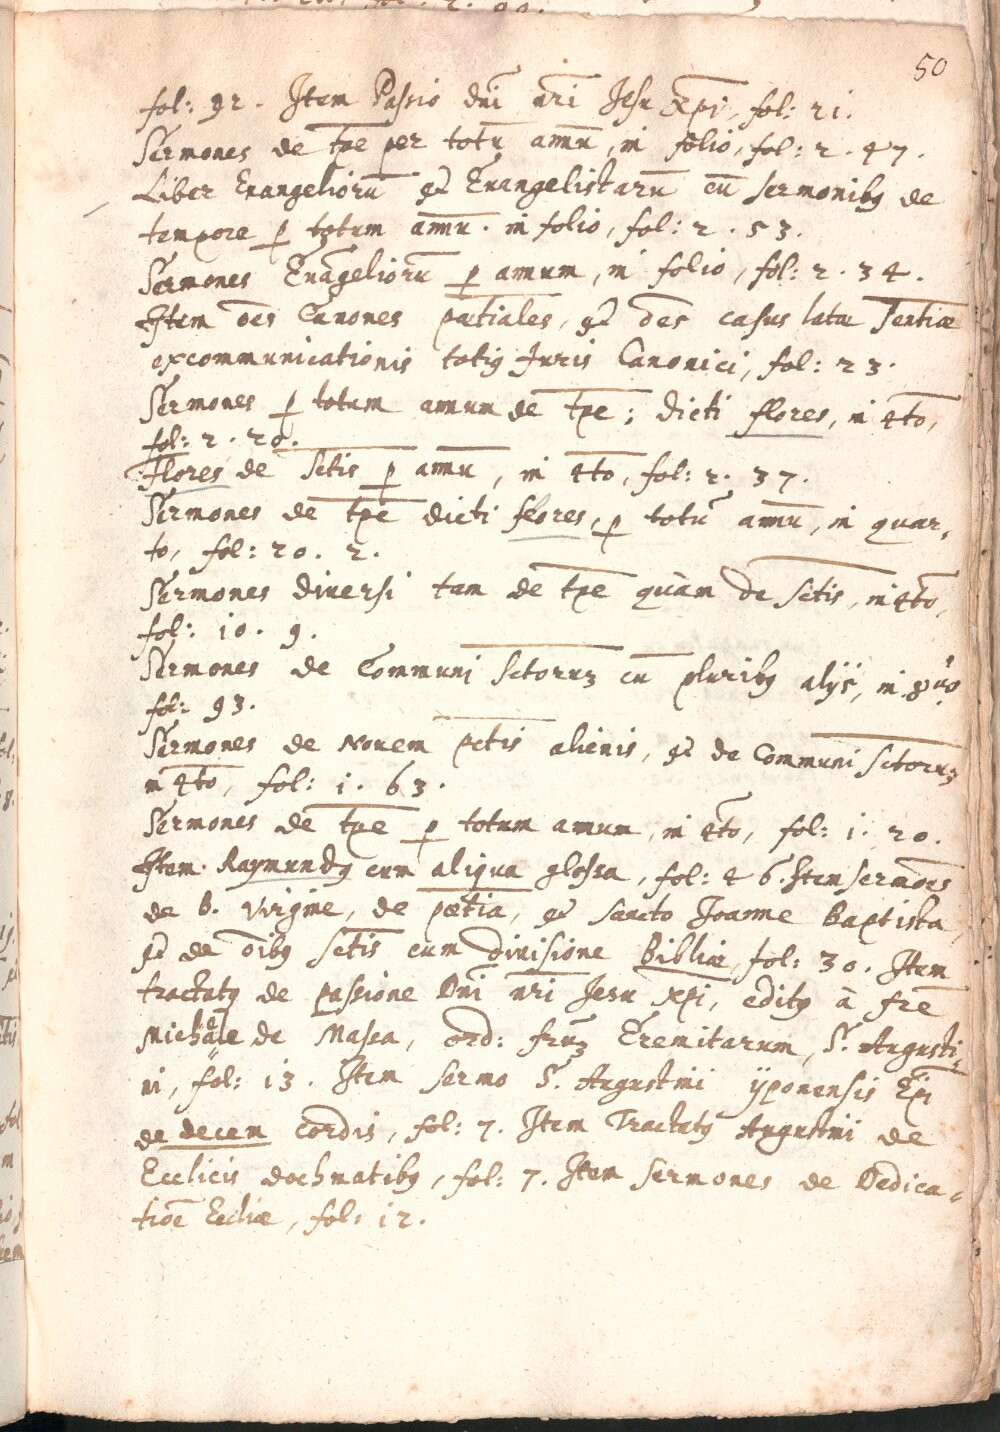 50
fol: 92. Item Passio dn̄i nr̄i Jesu xp̄i, fol: 21.
Sermones de tp̄e per totū annū, in folio, fol: 2.47.
Liber Evangeliorū et Evangelistarū cū sermonibꝰ de
tempore ꝑ totum annū. in folio, fol: 2.53.
Sermones Evāgeliorū ꝑ annum, in folio, fol: 2.34.
Item oēs Canones pœtiales, et oēs casus latæ Sentiæ
excommunicationis totiꝰ Juris Canonici, fol: 23.
Sermones ꝑ totum annum de tp̄e; dicti flores, in 4to,
fol: 2.20.
Flores de Sctis ꝑ annū, in 4to, fol: 2.37.
Sermones de tp̄e dicti flores, ꝑ totū annū, in quar,
to, fol: 20.2.
Sermones diversi tam de tp̄e quàm de Sctis, in 4to,
fol: 10.9.
Sermones de Communi Sctoruꝫ cū pluribꝰ alijs, in 8uo.
fol: 93.
Sermones de Novem pctis alienis, et de Communi Sctoruꝫ
in 4to, fol: 1.63.
Sermones de tp̄e ꝑ totum annum, in 4to, fol: 1.20.
Item Raymundꝰ cum aliqua glossa, fol: 46. Item sermōes
de B. Virgine, de pœtia, et sancto Joanne Baptista,
et de oībꝰ Sctis cum Divisione Bibliæ, fol: 30. Item
tractatꝰ de passione Dn̄i nr̄i Jesu xp̄i, editꝰ à frē
Michaële de Massa, ord: frūꝫ Eremitarum, S. Augusti,
ni, fol: 13. Item sermo S. Augustini ijponensis Ep̄i
de decem Cordis, fol: 7. Item Tractatꝰ Augustini de
Ecclicis dochmatibꝰ, fol: 7. Item sermones de Dedica,
tiōe Eccliæ, fol: 12.